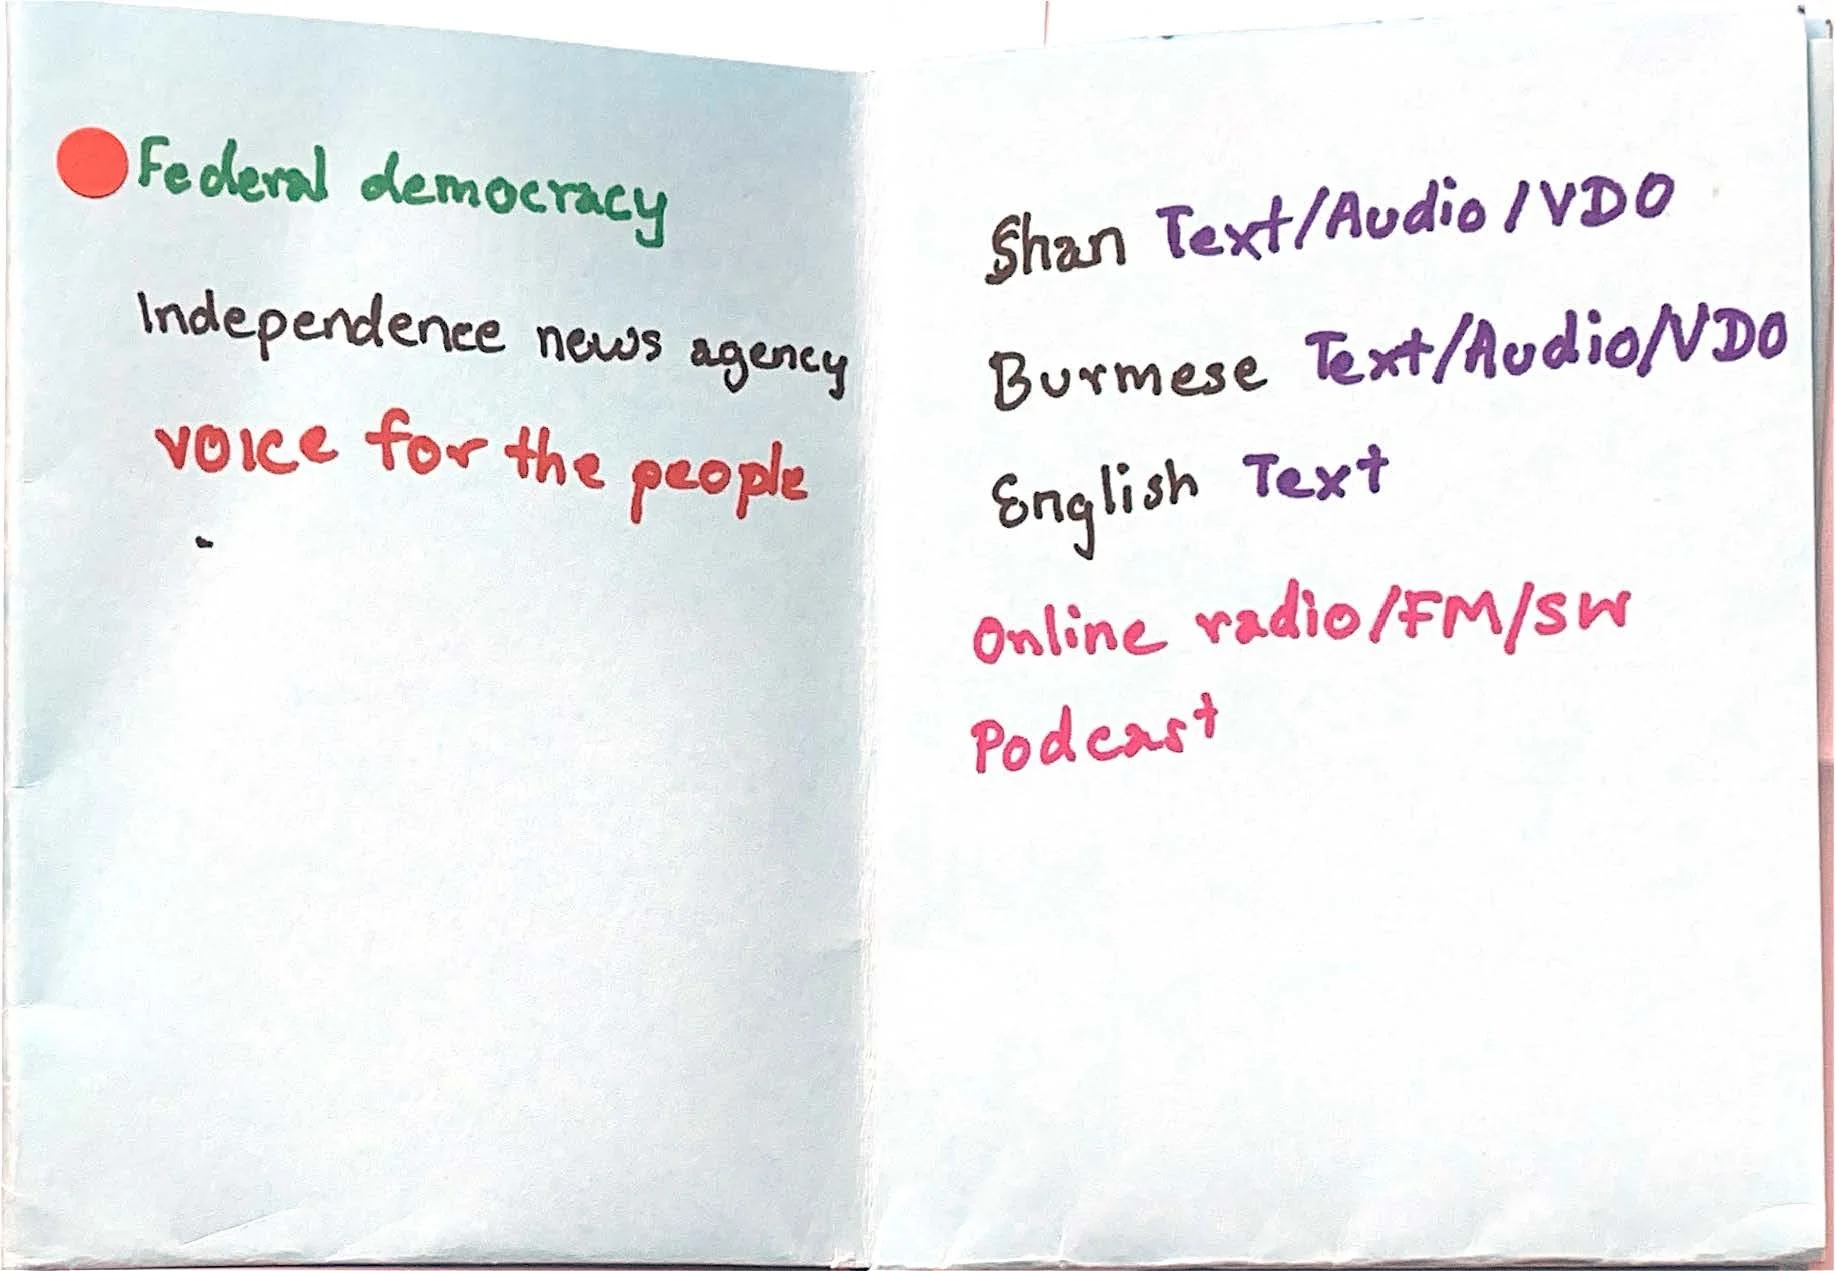 Federal democracy
Independence news agency
voice for the people
Shan Text/Audio/VDO
Burmese Text/Audio/VDO
English Text
Online radio/FM/SW
Podcast